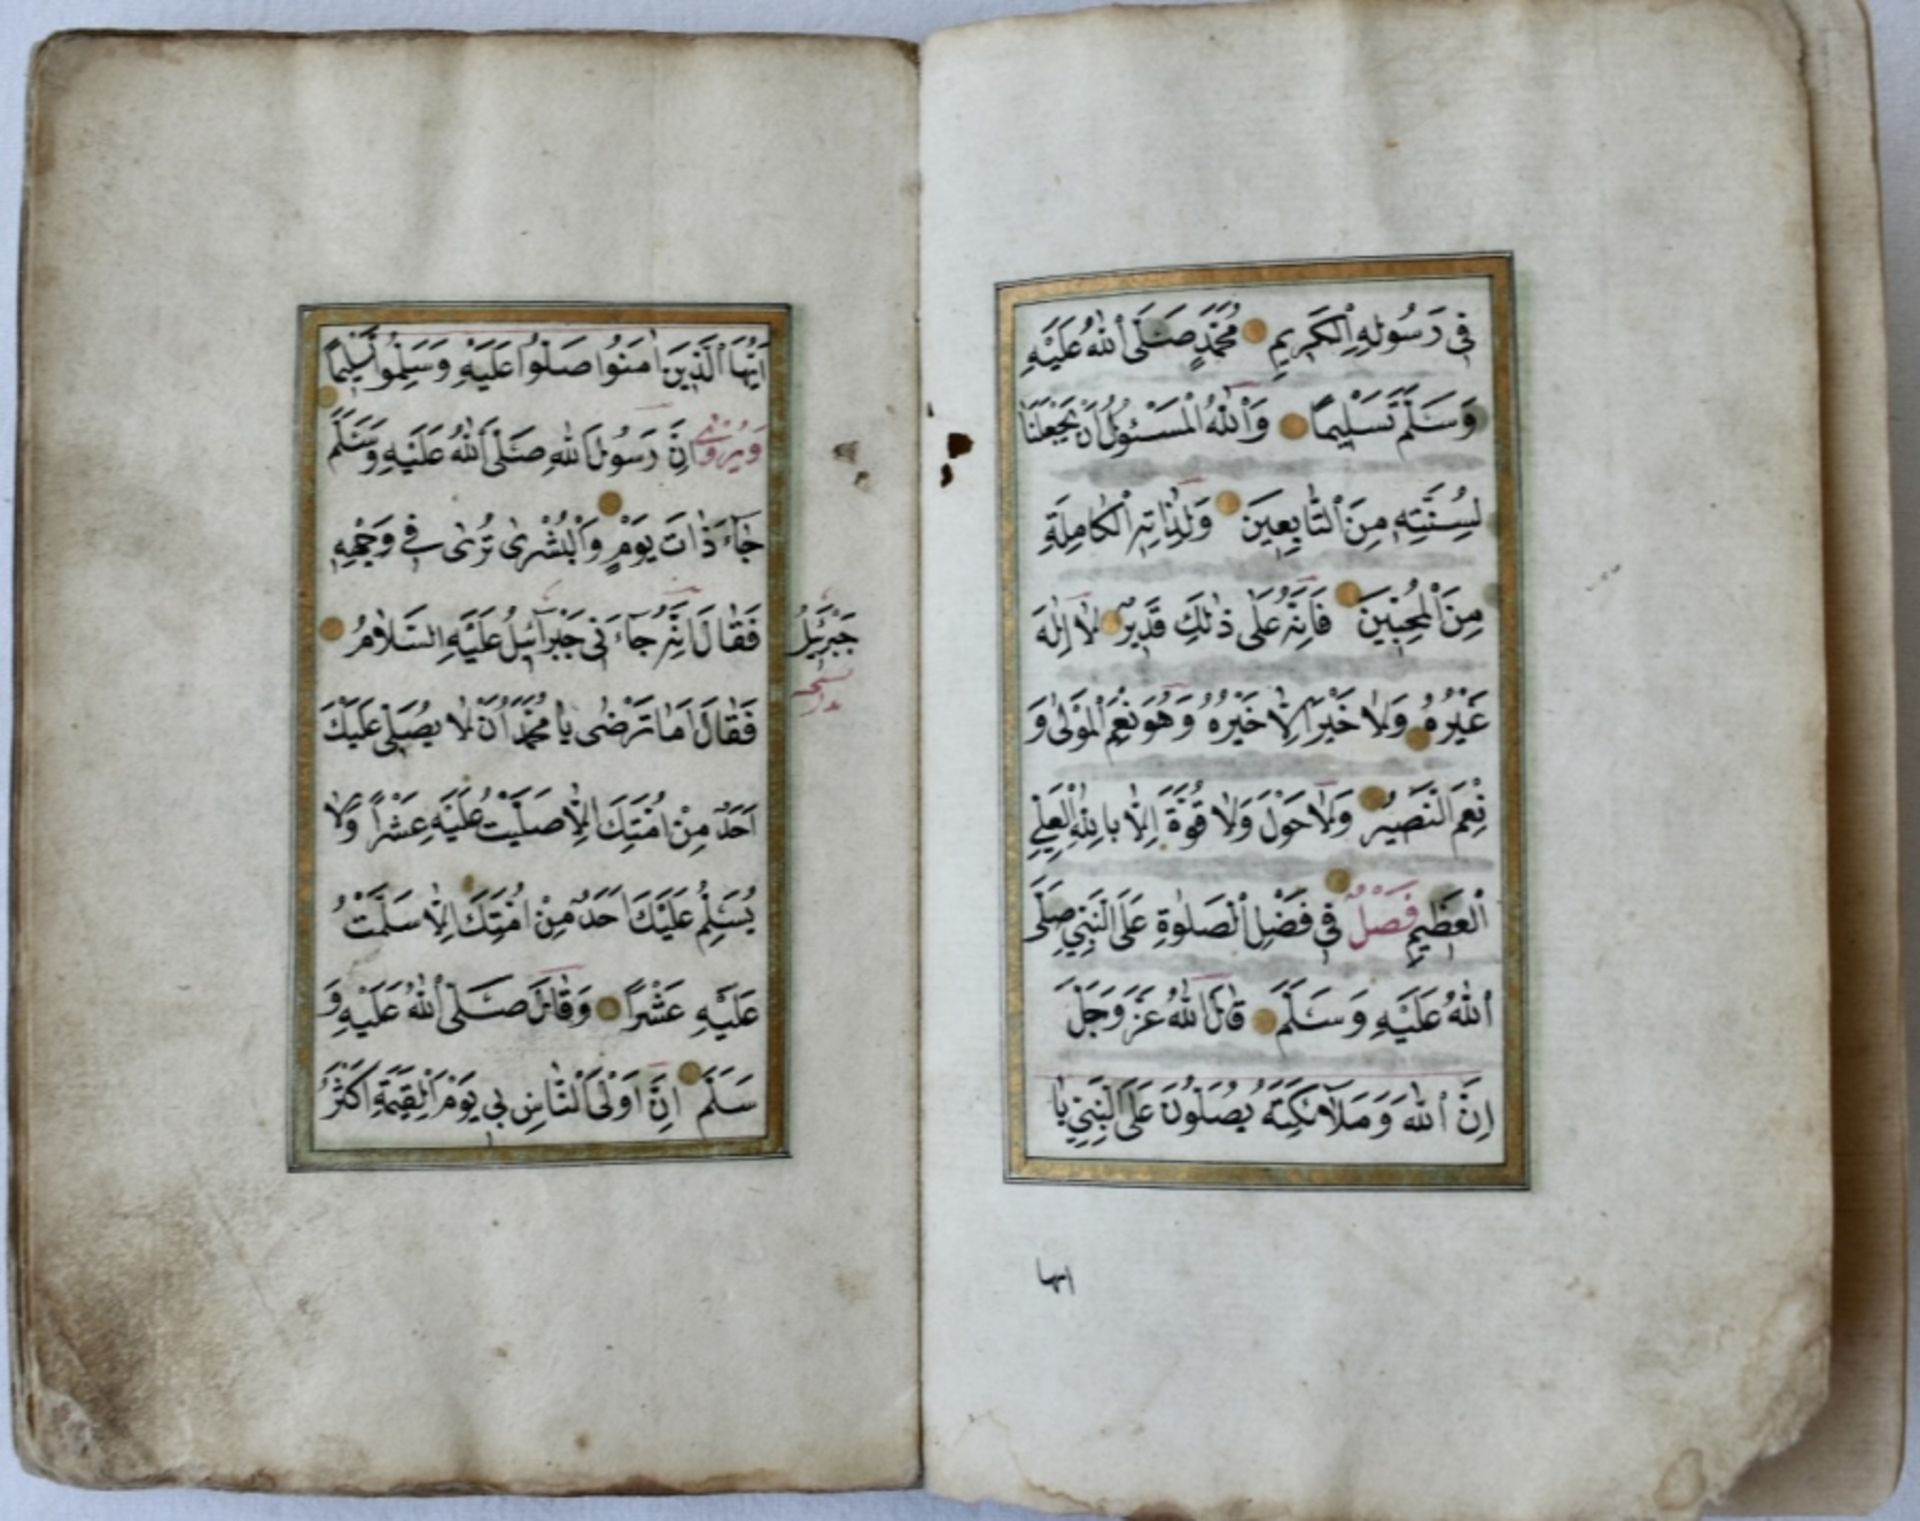 فِي رَسُولِهِ ٱلْكَرِيمِ مُحَمَّدٍ صَلَّى ٱللّٰهُ عَلَيْهِ
وَسَلَّمَ تَسْلِيمًا وَٱللّٰهُ الْمَسْئُولُ اَنْ يَجْعَلَنَا
لِسُنَّتِهِ مِنَ ٱلتَّابِعِينَ وَلِذَاتِهِ ٱلْكَامِلَةِ
مِنَ ٱلْمُحِبِّينَ فَاِنَّهُ عَلَى ذٰلِكَ قَدِيرٌ لَا اِلٰهَ
غَيْرُهُ وَلَا خَيْرَ اِلَّا خَيْرُهُ وَهُوَ نِعْمَ الْمَوْلَى وَ
نِعْمَ النَّصِيرُ وَلَا حَوْلَ وَلَا قُوَّةَ اِلَّا بِاللّٰهِ الْعَلِيِّ
ٱلْعَظِيمِ فَصْلٌ فِي فَضْلِ ٱلصَّلٰوةِ عَلَى النَّبِيِّ صَلَّى
ٱللّٰهُ عَلَيْهِ وَسَلَّمَ قَالَ ٱللّٰهُ عَزَّ وَجَلَّ
اِنَّ ٱللّٰهَ وَمَلَآئِكَتَهُ يُصَلُّونَ عَلَى النَّبِيِّ يَا
ايها
اَيُّهَا ٱلَّذِينَ اٰمَنُوا صَلُّوا عَلَيْهِ وَسَلِّمُوا تَسْلِيمًا
وَيُرْوٰى اَنَّ رَسُولَ ٱللّٰهِ صَلَّى ٱللّٰهُ عَلَيْهِ وَسَلَّمَ
جَآءَ ذَاتَ يَوْمٍ وَٱلْبُشْرٰى تُرٰى فِي وَجْهِهِ
فَقَالَ اِنَّهُ جَآءَنِي جَبْرَآئِيلُ عَلَيْهِ السَّلَامُ
جَبْرَئِيلُ
نسخه
فَقَالَ اَمَا تَرْضٰى يَا مُحَمَّدُ اَنْ لَا يُصَلِّيَ عَلَيْكَ
اَحَدٌ مِنْ اُمَّتِكَ اِلَّا صَلَّيْتُ عَلَيْهِ عَشْرًا وَلَا
يُسَلِّمُ عَلَيْكَ اَحَدٌ مِنْ اُمَّتِكَ اِلَّا سَلَّمْتُ
عَلَيْهِ عَشْرًا وَقَالَ صَلَّى ٱللّٰهُ عَلَيْهِ وَ
سَلَّمَ اِنَّ اَوْلَى ٱلنَّاسِ بِي يَوْمَ ٱلْقِيٰمَةِ اَكْثَرُ